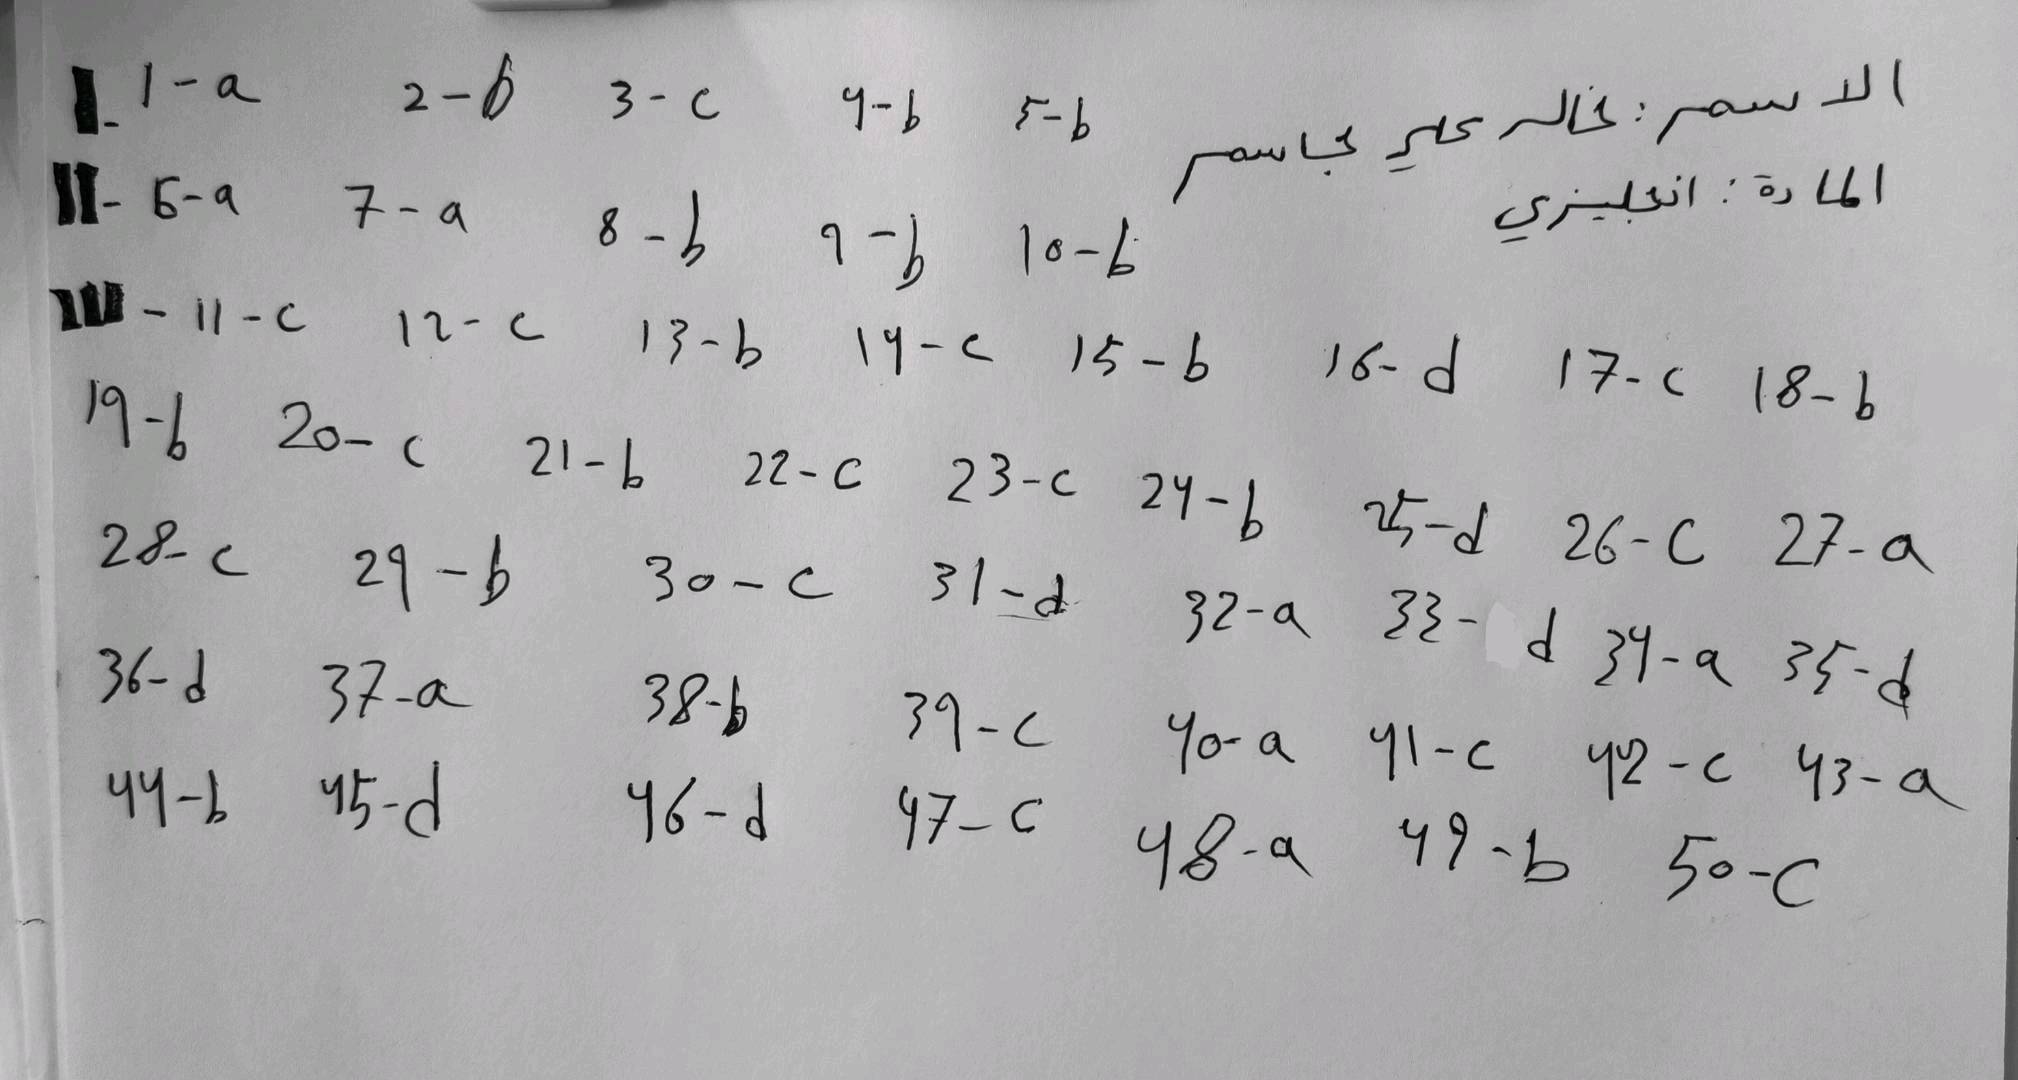 I- 1-a 2-b 3-c 4-b 5-b
الاسم: خالد علي جاسم
II- 6-a 7-a 8-b 9-b 10-b
المادة: انجليزي
III- 11-c 12-c 13-b 14-c 15-b 16-d 17-c 18-b
19-b 20-c 21-b 22-c 23-c 24-b 25-d 26-C 27-a
28-c 29-b 30-c 31-d 32-a 33-d 34-a 35-d
36-d 37-a 38-b 39-c 40-a 41-c 42-c 43-a
44-b 45-d 46-d 47-c 48-a 49-b 50-C